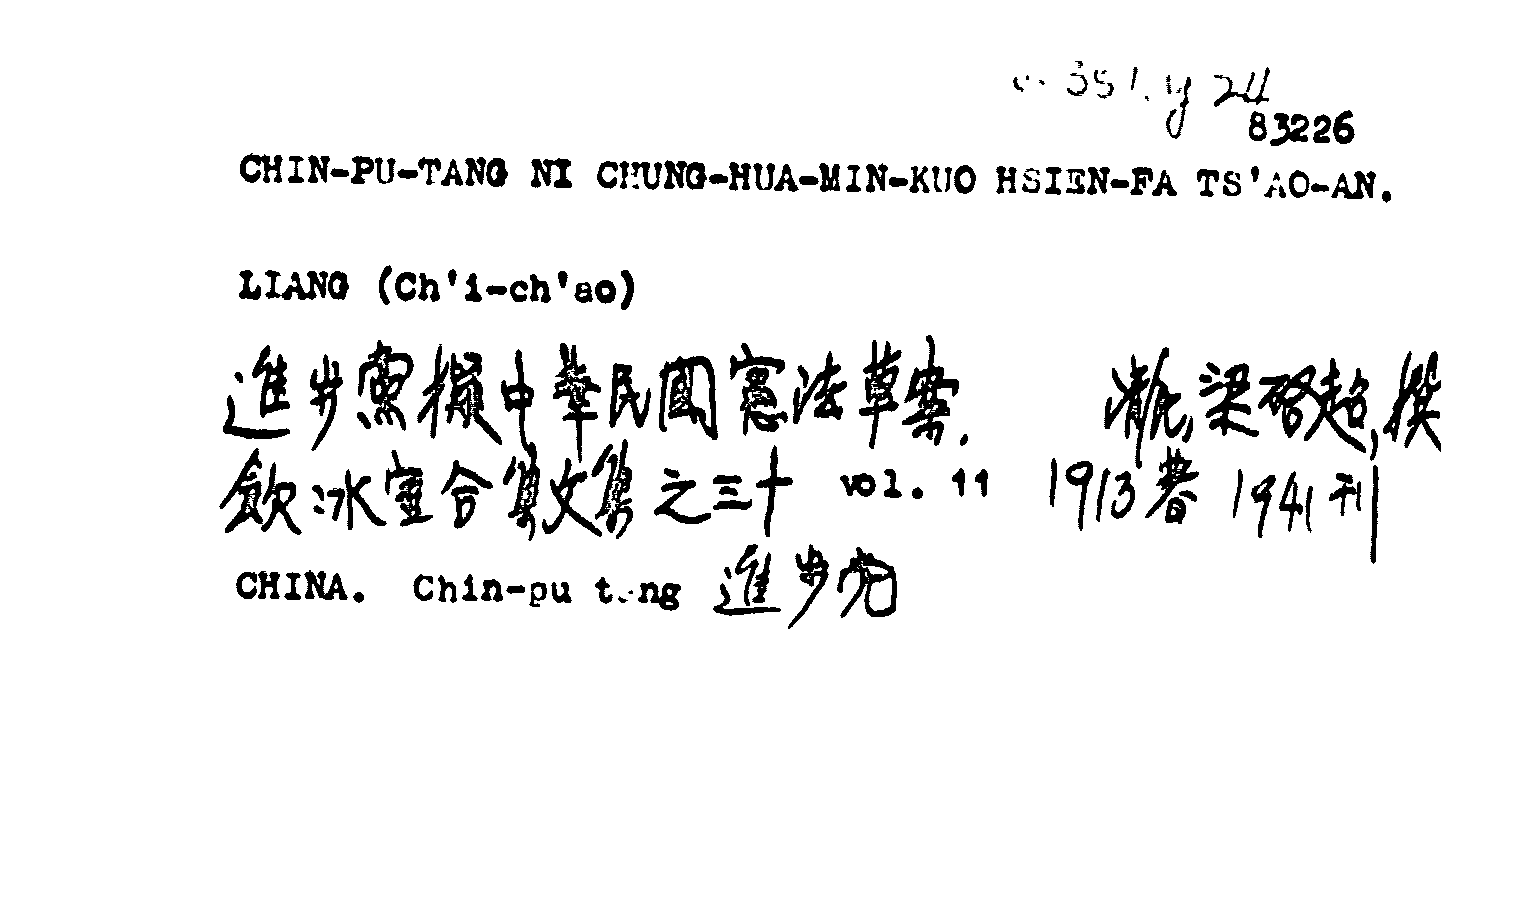 24
83226
CHIN-PU-TANG NI CHUNG-HUA-MIN-KUO HSIEN-FA TS'AO-AN.
LIANG (Ch'i-ch'ao)
進步黨擬中華民國憲法草案. 梁啓超, 撰
飲冰室合集文集之三十 vol. 11 1913著 1941刊
CHINA. Chin-pu tang 進步党